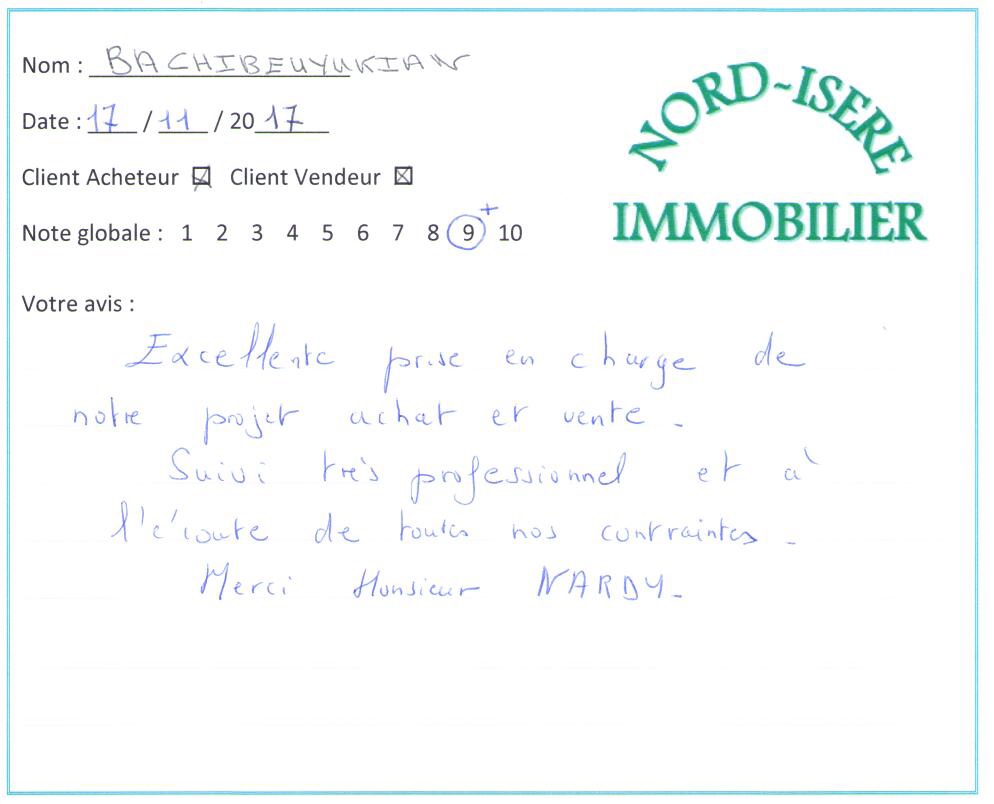 Nom : BACHIBEUYUKIAN
NORD~ISERE
IMMOBILIER
Date : 17 / 11 / 2017
Client Acheteur ☒ Client Vendeur ☒
Note globale : 1 2 3 4 5 6 7 8 9+ 10
Votre avis :
Excellente prise en charge de
notre projet achat et vente.
Suivi très professionnel et à
l'écoute de toutes nos contraintes.
Merci Monsieur NARDY.